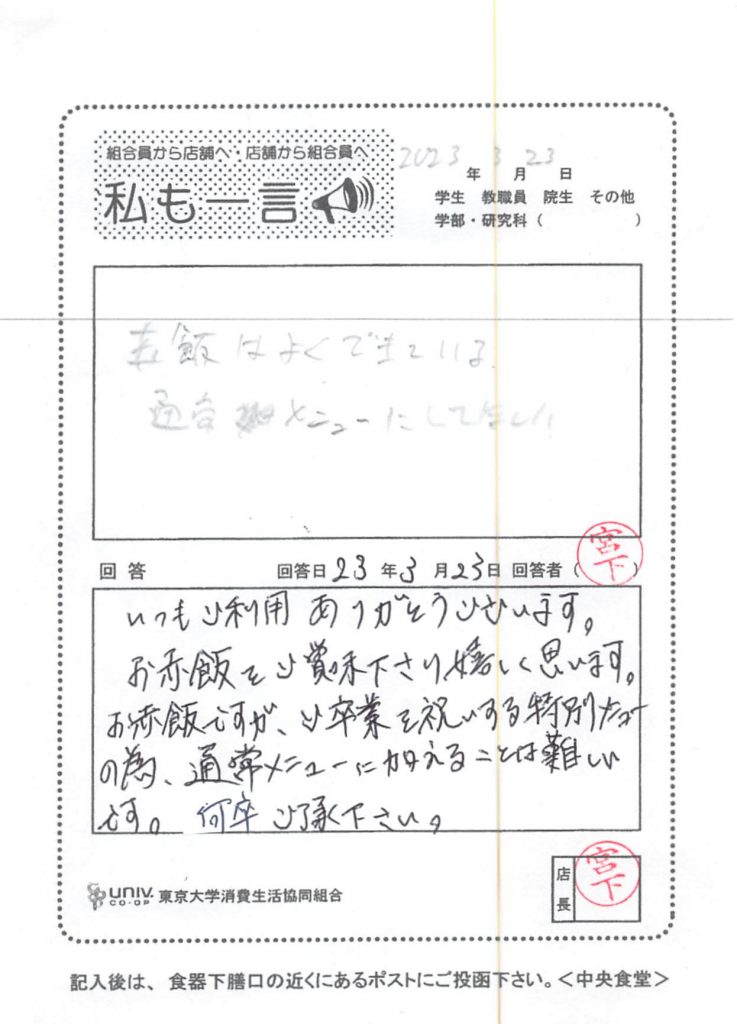 組合員から店舗へ・店舗から組合員へ
私も一言
2023 3 23
年 月 日
学生 教職員 院生 その他
学部・研究科( )
赤飯はよくできている.
メニューにしてほしい
回答 回答日 23 年 3 月 23 日 回答者(宮下)
いつもご利用ありがとうございます。
お赤飯をご賞味下さり嬉しく思います。
お赤飯ですが、ご卒業を祝いする特別メニュー
の為、通常メニューに加えることは難しい
です。何卒ご了承下さい。
UNIV. CO-OP 東京大学消費生活協同組合
店長 宮下
記入後は、食器下膳口の近くにあるポストにご投函下さい。<中央食堂>